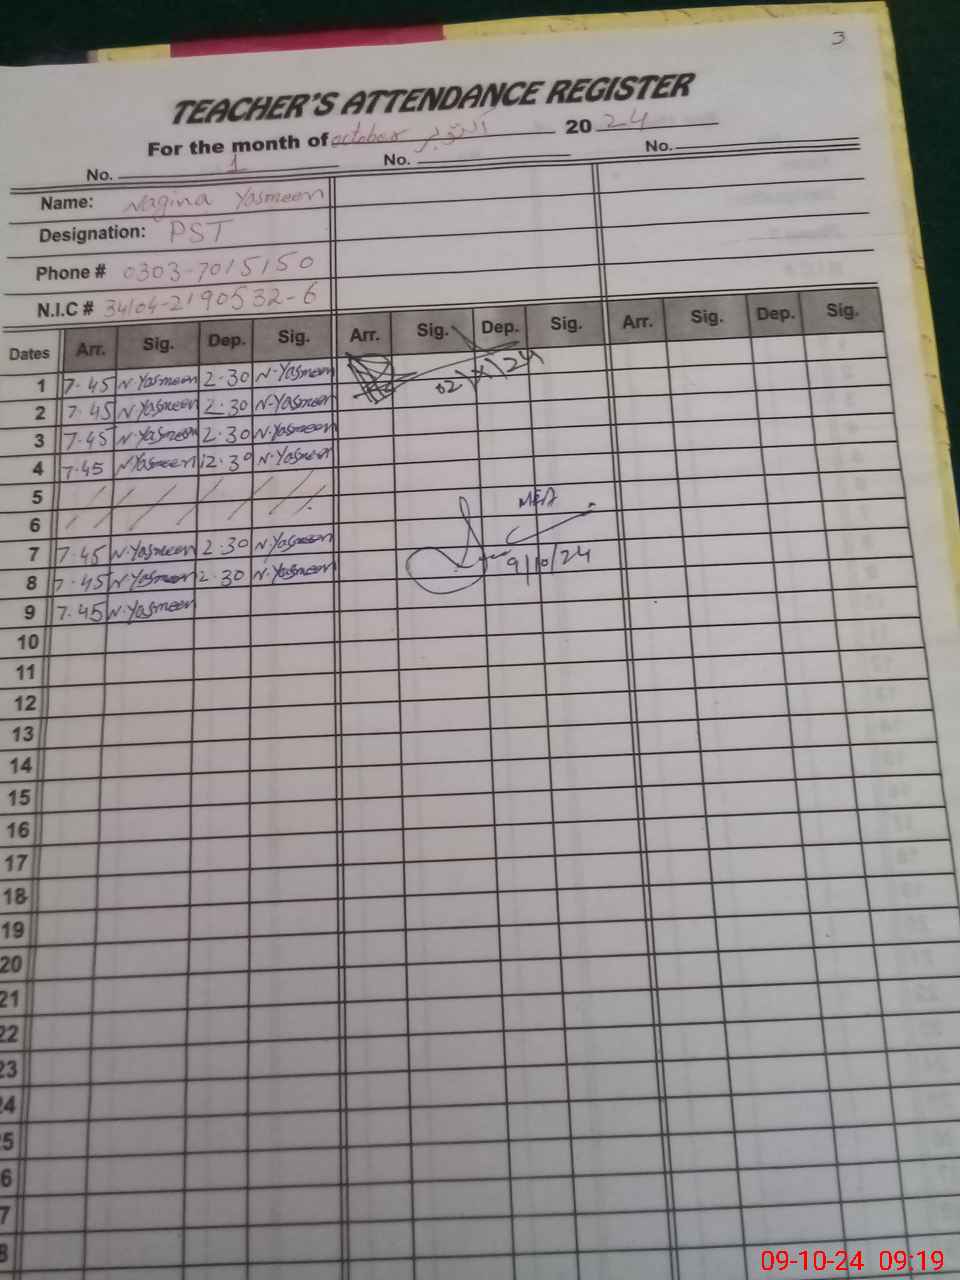 3
TEACHER'S ATTENDANCE REGISTER
For the month of october اکتوبر 2024
No. 1 No. No.
Name: Nagina Yasmeen
Designation: PST
Phone # 0303-7015150
N.I.C # 34104-2190532-6
Dates Arr. Sig. Dep. Sig. Arr. Sig. Dep. Sig. Arr. Sig. Dep. Sig.
1 7.45 N.Yasmeen 2.30 N.Yasmeen 02/X/24
2 7.45 N.Yasmeen 2.30 N.Yasmeen
3 7.45 N.Yasmeen 2.30 N.Yasmeen
4 7.45 N.Yasmeen 2.30 N.Yasmeen
5 / / / / /
6 / / / / /
MEA
7 7.45 N.Yasmeen 2.30 N.Yasmeen 9/10/24
8 7.45 N.Yasmeen 2.30 N.Yasmeen
9 7.45 N.Yasmeen
10
11
12
13
14
15
16
17
18
19
20
21
22
23
24
5
6
7
8
09-10-24 09:19